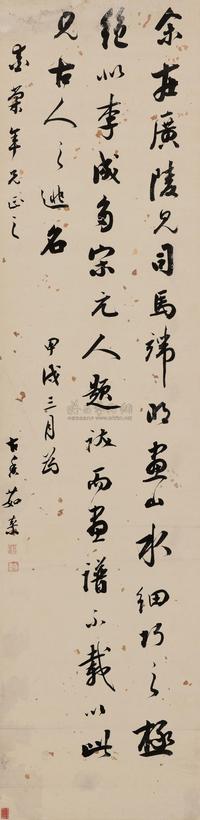 余在廣陵見司馬端明畫山水細巧之極
絕似李成多宋元人題跋而畫譜不載以此
見古人之逃名 甲戌三月為
走葉年兄正之
古香茹棻